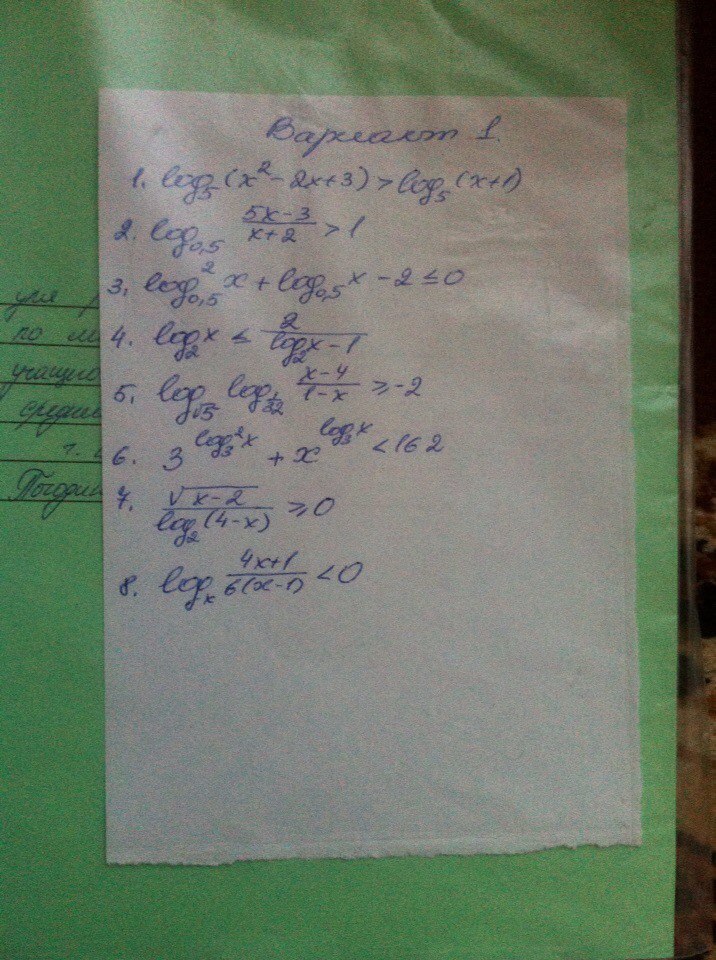 Вариант 1.
1. log₅(x² - 2x + 3) > log₅(x+1)
2. log₀,₅ (5x-3)/(x+2) > 1
3. log²₀,₅ x + log₀,₅ x - 2 ≤ 0
4. log₂x ≤ 2/(log₂x - 1)
5. log_√5 log_1/32 (x-4)/(1-x) ≥ -2
6. 3^(log₃²x) + x^(log₃x) < 162
7. √(x-2)/log₂(4-x) ≥ 0
8. logₓ (4x+1)/(6(x-1)) < 0
по